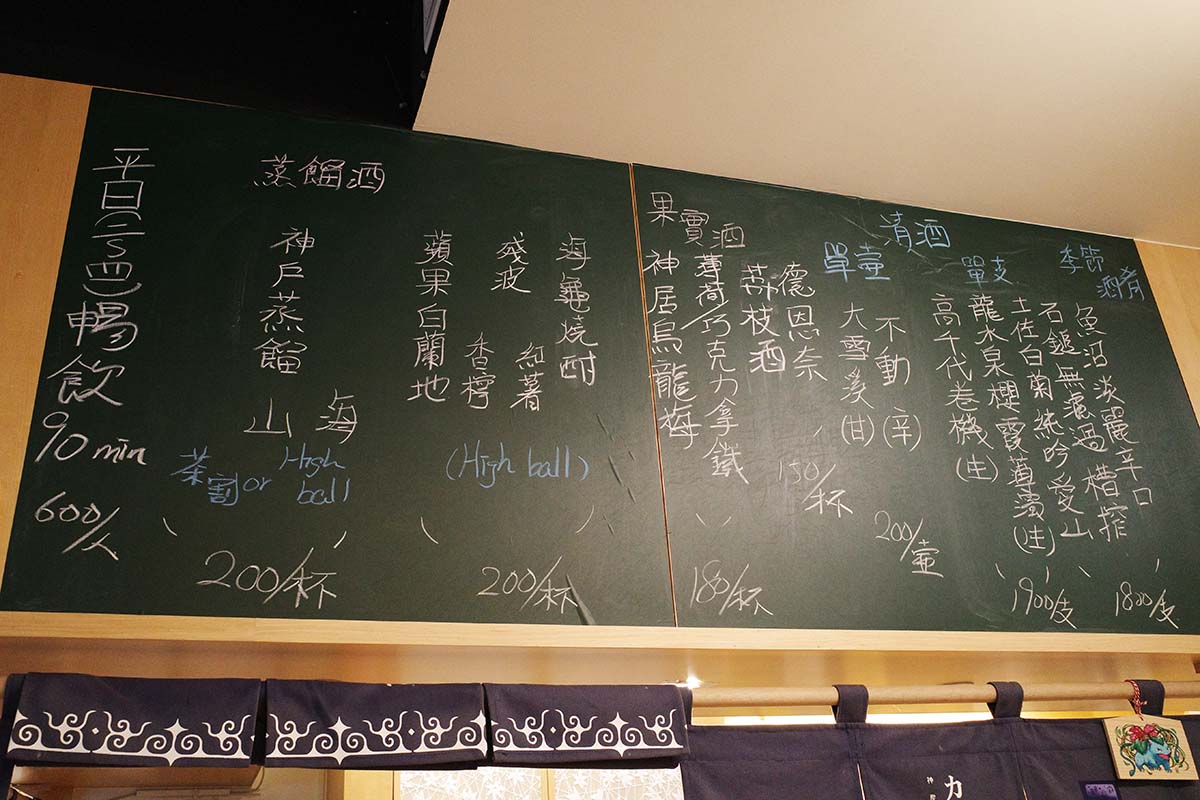 平日(二~四)暢飲
90 min
600/人
蒸餾酒
神戶蒸餾
山
海
茶割 or High ball
200/杯
蘋果白蘭地
殘波
香檸
紅薯
海龜燒酎
(High ball)
200/杯
果實酒
神居烏龍梅
薄荷/巧克力拿鐵
180/杯
荔枝酒
德恩奈
150/杯
清酒
單壺
大雪溪(甘)
不動(辛)
200/壺
單支
高千代卷機(生)
龍水泉櫻霞薄濁(生)
1900/支
季節酒肴
土佐白菊純吟愛山
石鎚無濾過槽搾
魚沼淡麗辛口
1800/支
力